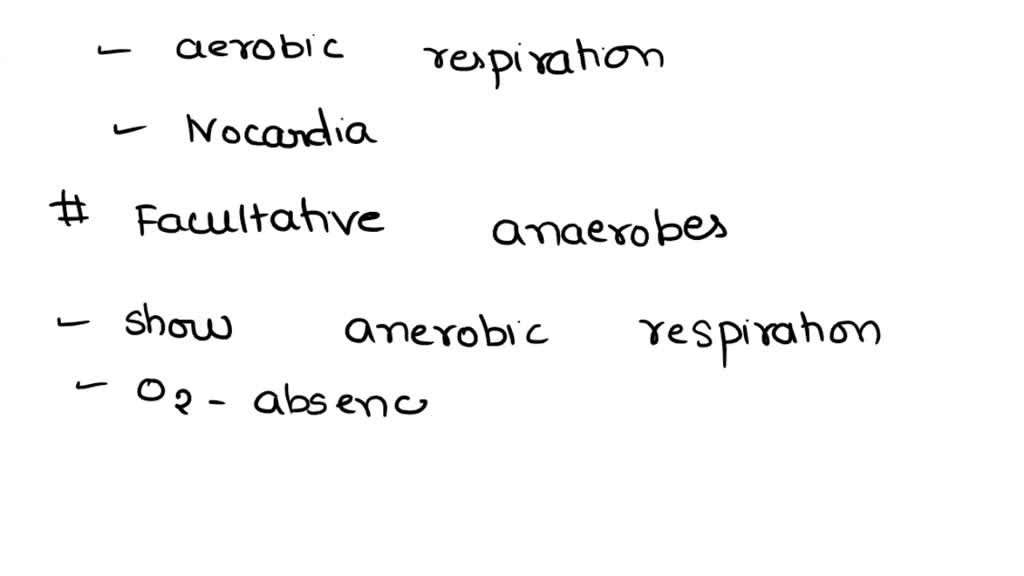 - aerobic respiration
- Nocardia
# Facultative anaerobes
- show anerobic respiration
- O2 - absenc